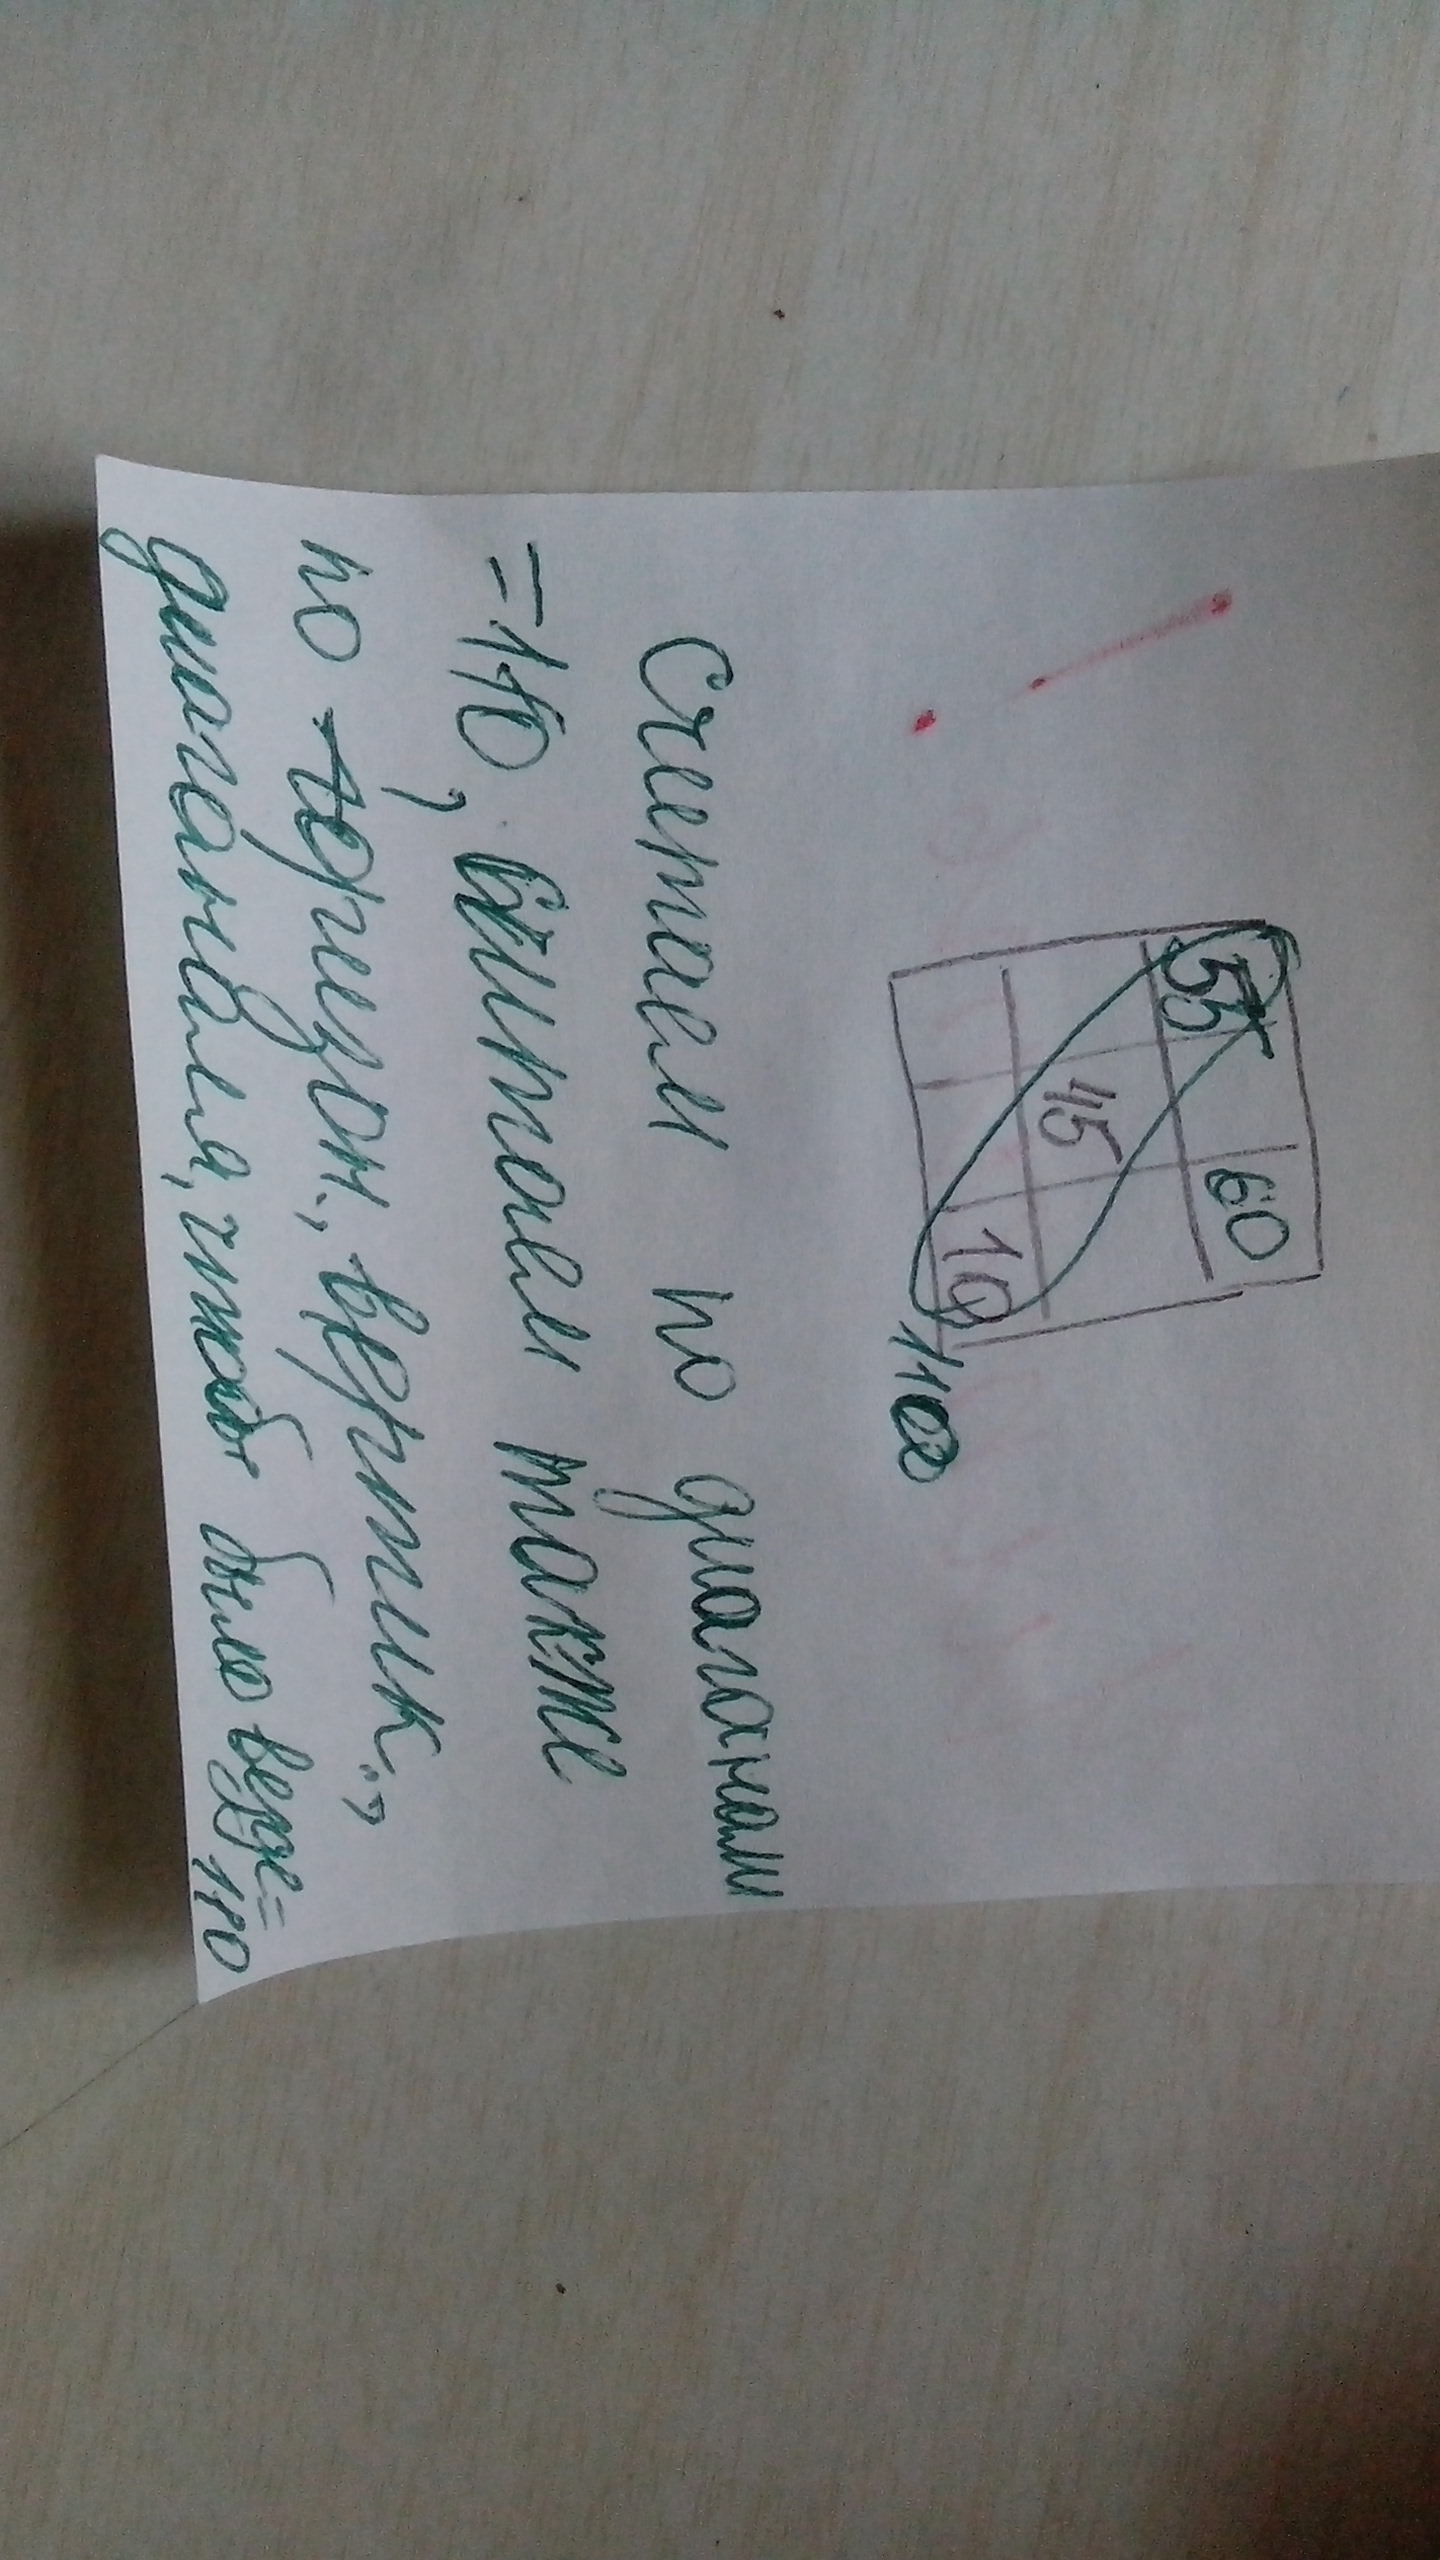 55 60
45
10
110
Считаем по диаганам
=110, считаем также
по -горизон., вертик.,
диагоналям, чтобы было везде=
110